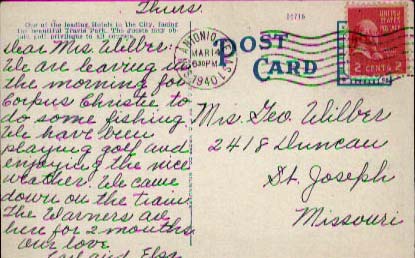 Thurs.
One of the leading Hotels in the City, facing
the beautiful Travis Park. The guests may ob-
Dear Mrs. Wilber:
We are leaving in
the morning for
Corpus Christie to
do some fishing.
We have been
playing golf and
enjoying the nice
weather. We came
down on the train
The Warners are
here for 2 months
Our love
and Elsa
ANTONIO
MAR 14
630PM
1940
POST
CARD
UNITED
STATES
POSTAGE
2 CENTS 2
Mrs. Geo Wilber
2418 Duncan
St. Joseph
Missouri